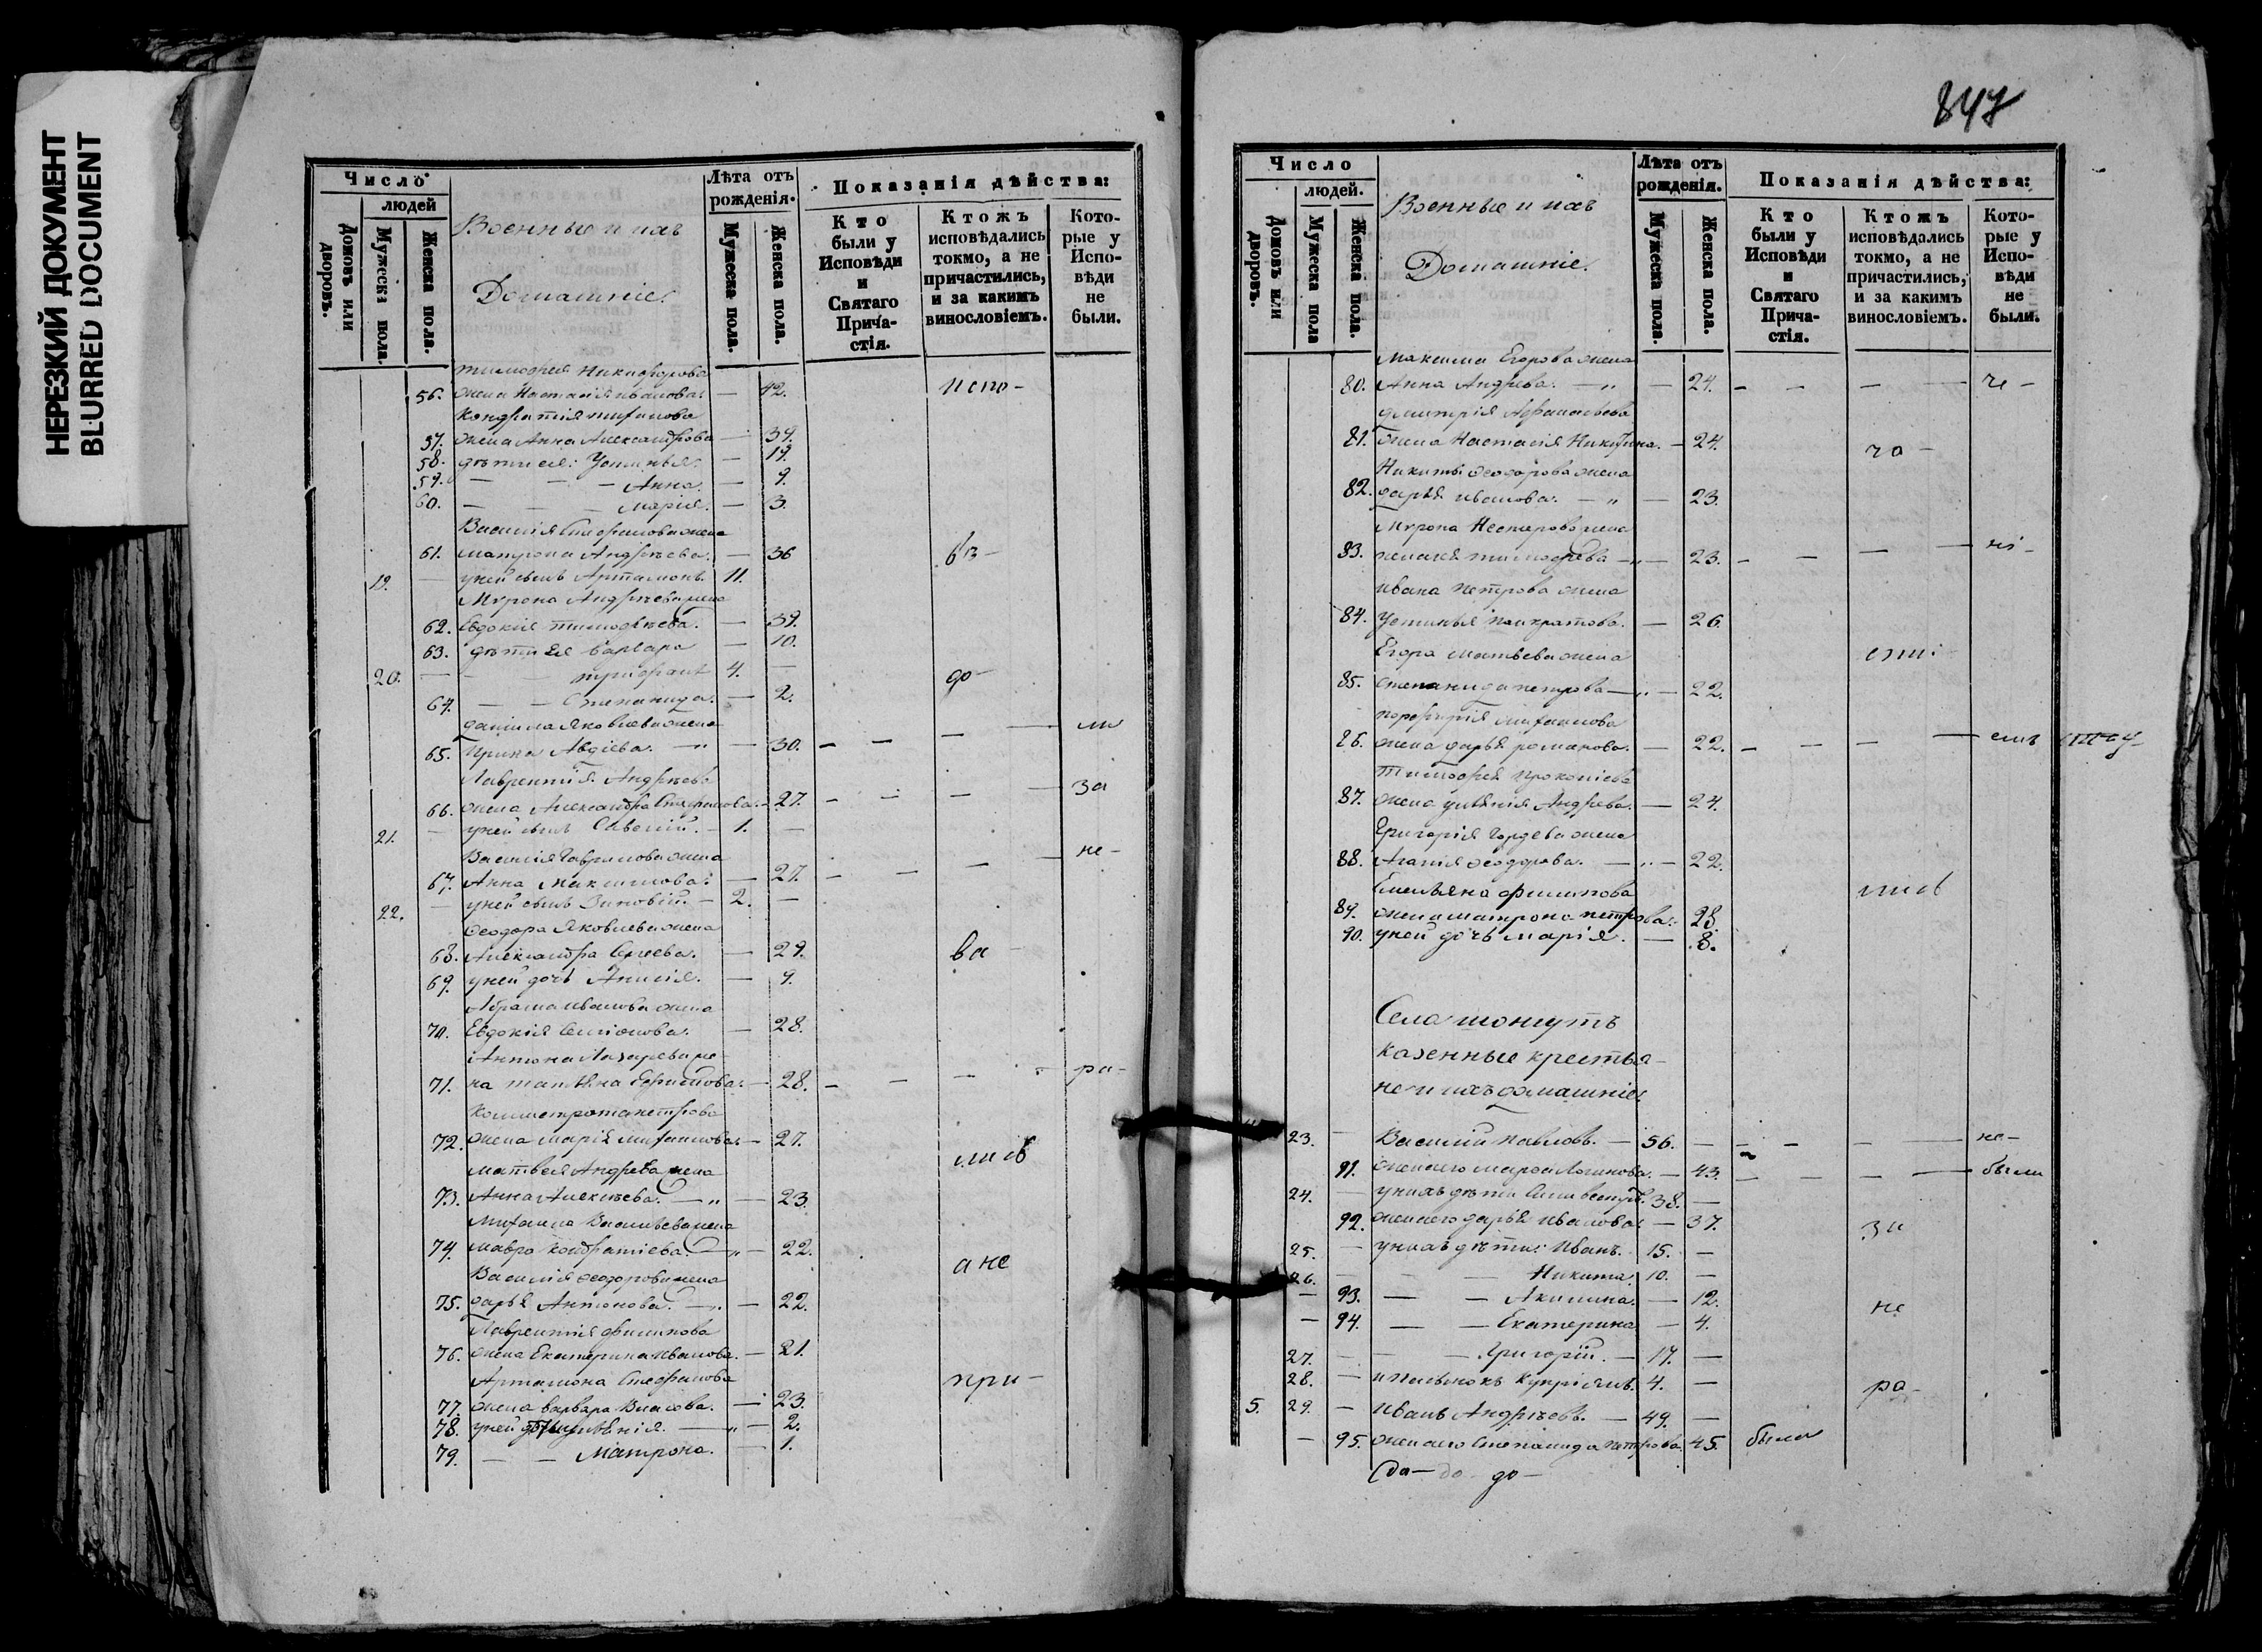 НЕРЕЗКИЙ ДОКУМЕНТ
BLURRED DOCUMENT
Число
людей
Домовъ или дворовъ.
Мужеска пола.
Женска пола.
Военные и ихъ
Домашніе.
Лѣта отъ рожденія.
Мужеска пола.
Женска пола.
Показанія дѣйства:
Кто были у Исповѣди и Святаго Прича-стія.
Ктожъ исповѣдались токмо, а не причастились, и за какимъ винословіемъ.
Кото-рые у Испо-вѣди не были.
Тимофея Никифорова
56. жена Настасія Иванова. — 42. испо-
Кондратія
57. жена Анна Александрова — 39.
58. дѣти ея: Устинья. — 19.
59. — — — Анна. — 9.
60. — — — Марія. — 3.
Василія Стефанова жена
61. Матрона Андрѣева. — 36
19. — у ней сынъ Артамонъ. 11.
Мѵрона Андрѣева жена
62. Евдокія Тимофѣева. — 39.
63. дѣти ея Варвара — 10.
20. — — — Трифонъ 4. — до-
64. — — Степанида. — 2.
Даніила Яковлева жена
65. Ирина Авдіева. — „ — 30. — — — — ли
Лаврентія Андрѣева
66. жена Александра Стефанова. — 27. — — — — за
21. — у ней сынъ Савелій. — 1. —
Василія Гаврилова жена
67. Анна Максимова. — 27. — — — — не-
22. — у ней сынъ Зиновій. — 2. —
Феодора Яковлева жена
68. Александра Сергеева. — 29. ва-
69. у ней дочь Анисія. — 9.
Абрама Иванова жена
70. Евдокія Симіонова. — 28.
Антона Лазарева же-
71. на Татьяна Ефимова. — 28. — — — — ра-
Петрова
72. жена Марія Михаилова — 27.
Матвея Андрева жена ли съ
73. Анна Алексѣева. — „ — 23.
Михаила Васильева жена
74. Мавра Кондратіева. — „ — 22.
Василія Феодорова жена а не
75. Дарья Антонова. — „ — 22.
Лаврентія Филипова
76. жена Екатерина Иванова. — 21.
Артамона Стефанова при-
77. жена Варвара Власова. — 23.
78. у ней — „ — 2.
79. — — Матрона. — 1.
847
Число
людей.
Домовъ или дворовъ.
Мужеска пола
Женска пола.
Военные и ихъ
Домашніе.
Лѣта отъ рожденія.
Мужеска пола.
Женска пола.
Показанія дѣйства:
Кто были у Исповѣди и Святаго Прича-стія.
Ктожъ исповѣдались токмо, а не причастились, и за какимъ винословіемъ.
Кото-рые у Испо-вѣди не были.
Максима Егорова жена
80. Анна Андрева. — „ — 24. — — — —
Дмитрія Афанасьева
81. жена Настасія Никитина. — 24.
Никиты Феодорова жена
82. Дарья Иванова. — „ — 23.
Мѵрона Нестерова жена
83. Тимофева — „ — 23. — — — —
Ивана Петрова жена
84. Устинья Панкратова. — 26.
Егора Матвева жена
85. Степанида Петрова — „ — 22.
Порфирія Михаилова
86. жена Дарья Романова. — 22. — — — —
Тимофея Прокопіева
87. жена Андрева. — 24.
Григорія Гордева жена
88. Агапія Феодорова. — „ — 22.
Емельяна Филипова
89. жена Матрона Петрова. 28.
90. у ней дочь Марія. — 8.
Села
казенные крестья-
не и ихъ домашніе
23. — Василій Павловъ. — 56. — — — — не-
91. жена его Марфа Логинова. — 43. — — — — были
24. — у нихъ дѣти Силивестръ. 38. —
92. жена его Дарья Иванова — 37.
25. — у нихъ дѣти: Иванъ. 15. —
26. — — — Никита. 10. —
— 93. — — Акилина. — 12.
— 94. — — Екатерина — 4. не
27. — — — Григорій. — 17. —
28. — 4. — ра-
5. 29. — Иванъ Андрѣевъ. — 49. —
— 95. жена его Степанида Петрова. 45. были